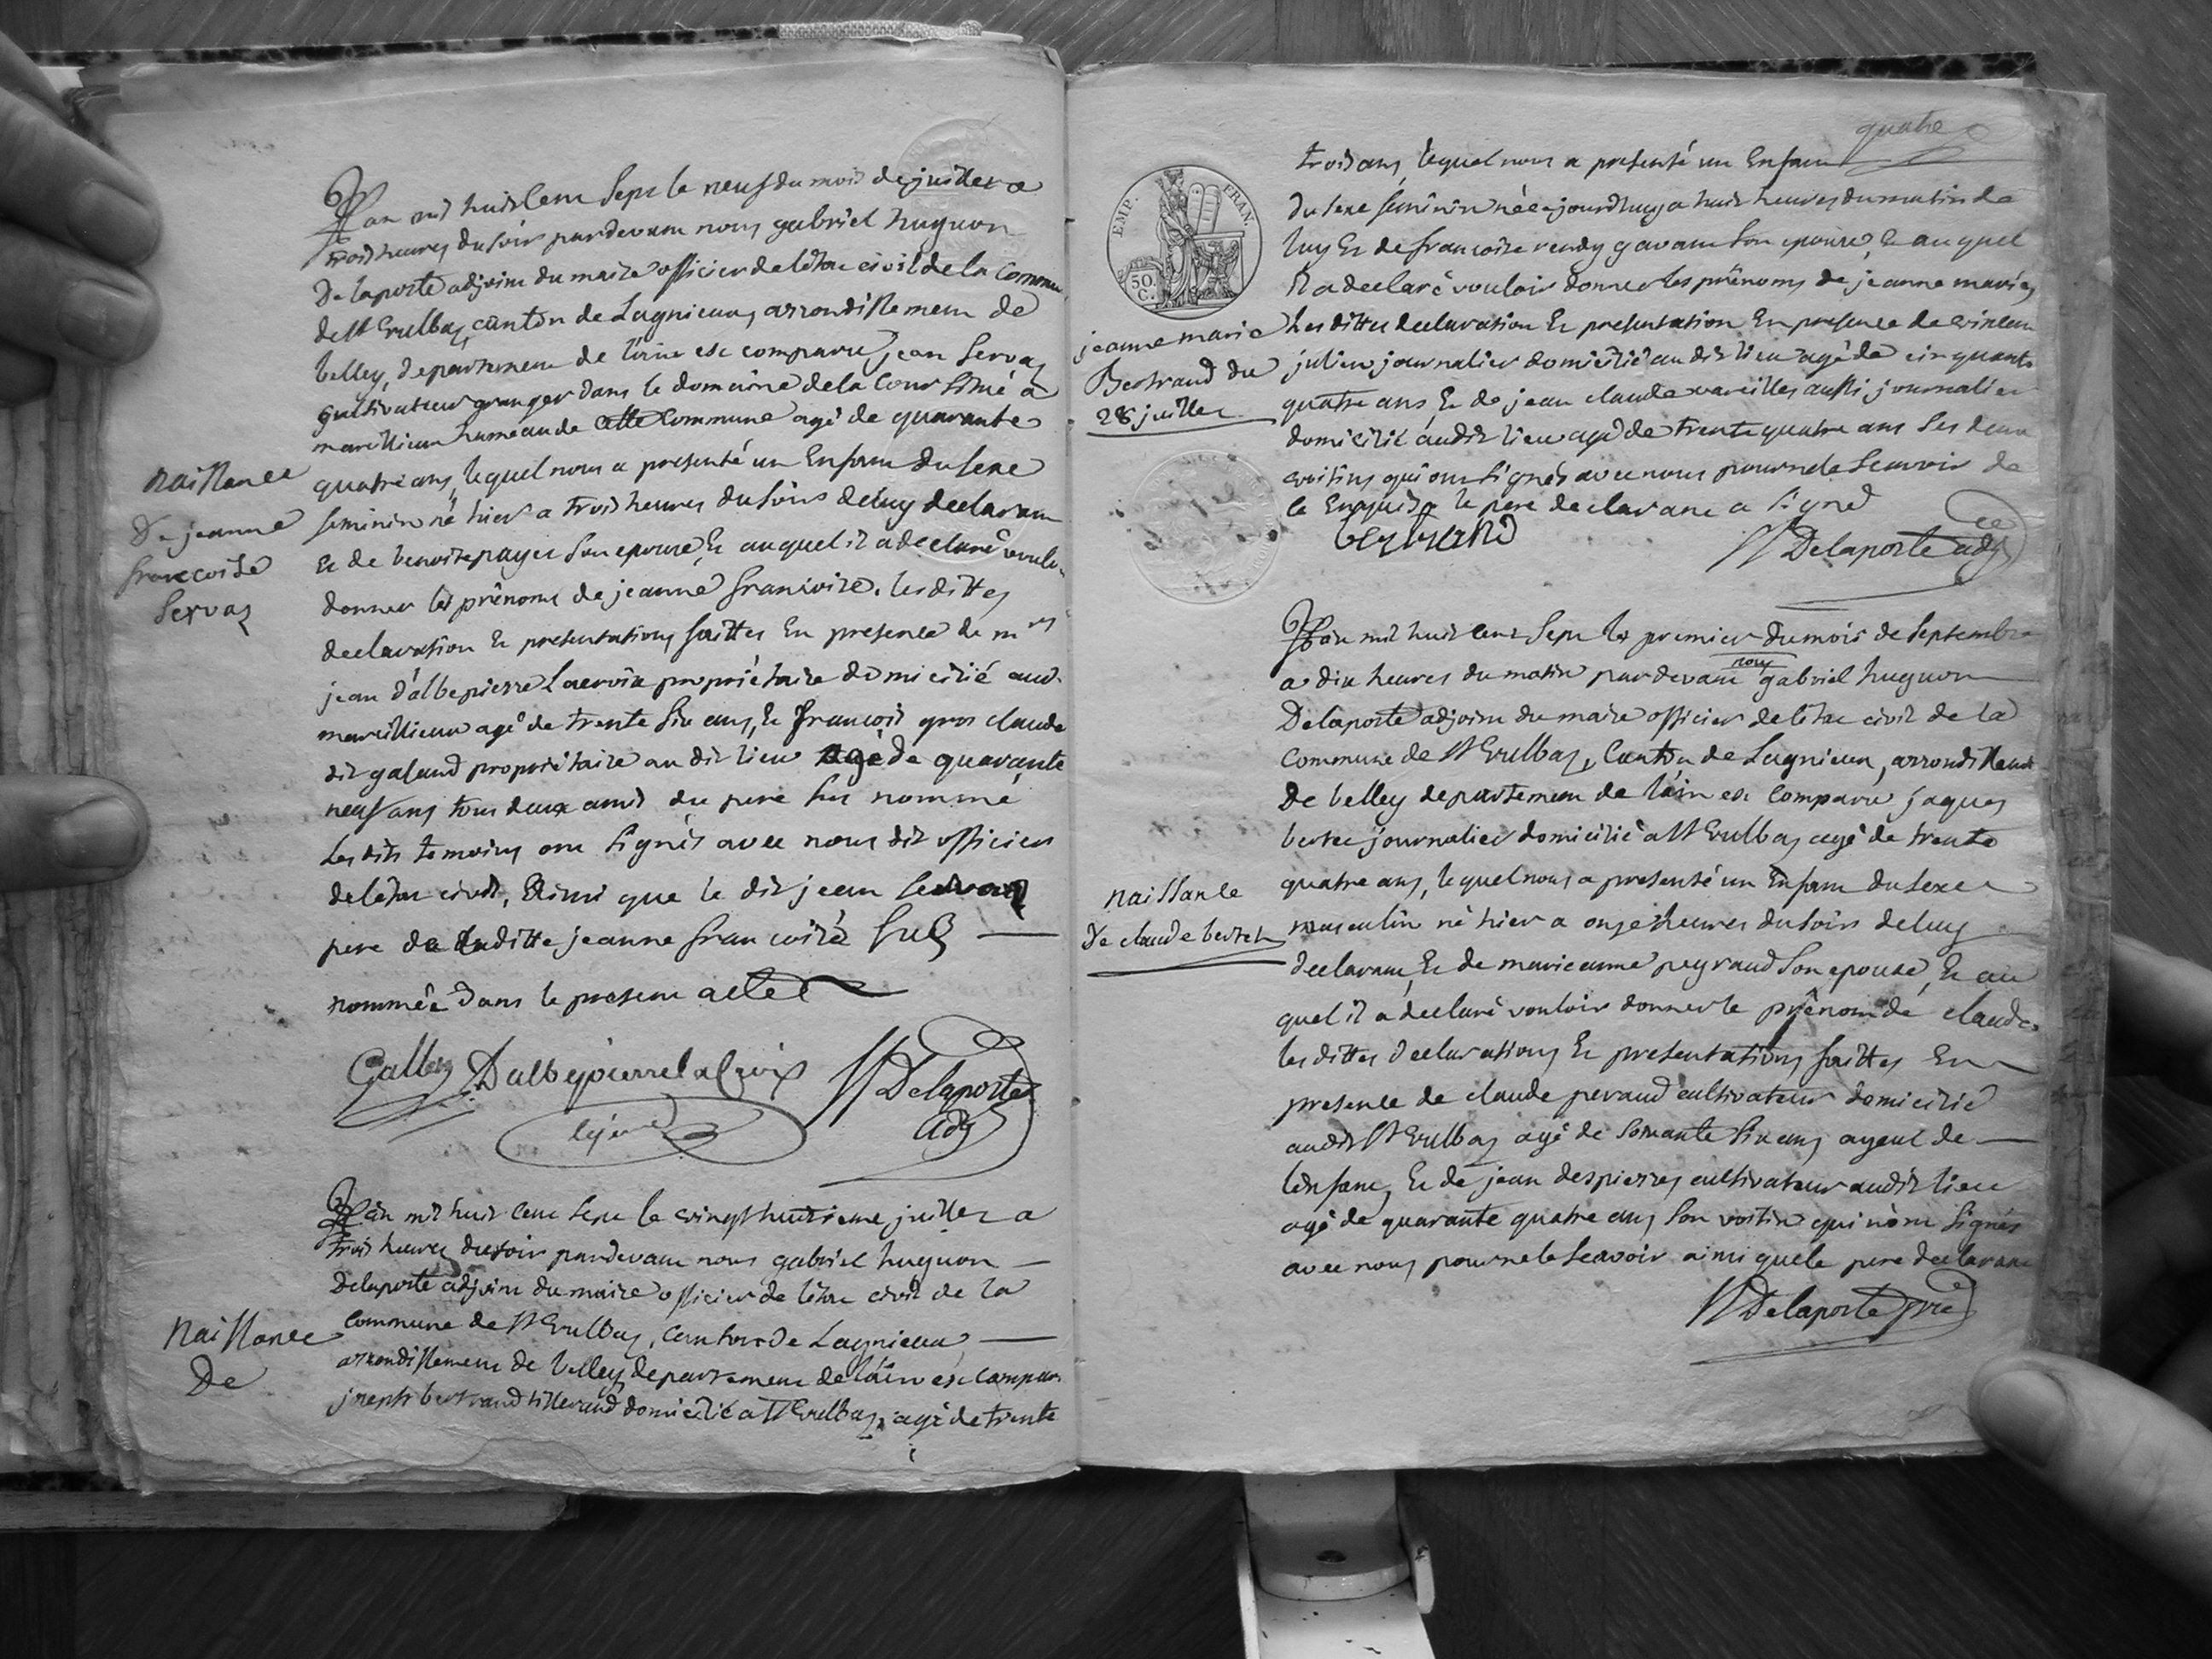 L'an mil huit cent sept le neuf du mois de juillet a
trois heures du soir pardevant nous gabriel hugnon
Delaporte adjoint du maire officier de létat civil de la commune
de St Vulbas, canton de Lagnieux, arrondissement de
belley, departement de l'ain est comparu jean Servaz
cultivateur granger dans le domaine de la Cour situé à
marcillieux hameau de cette commune agé de quarante
naissance
De jeanne
francoise
Servaz
quatre ans, lequel nous a presenté un Enfant du sexe
feminin né hier a trois heures du soir de luy declarant
Et de benoite payer son epouse, Et auquel il a declaré vouloir
donner les prênoms de jeanne francoise. les dittes
declaration Et presentations faittes En presence de mrs
jean d'albepierre Lacroix propriétaire domicilié aud.
marcillieux agé de trente six ans, Et francois gros claude
dit galand propriétaire au dit lieu agé de quarante
neuf ans tous deux amis du pere sus nommé
Les dits temoins ont signés avec nous dit officier
de létat civil, Ainsi que le dit jean servaz
pere de laditte jeanne francoise sus
nommée dans le present acte
Dalbepierre lacroix
Delaporte
adj
L'an mil huit cent sept le vingt huitieme juillet a
trois heures du soir pardevant nous gabriel hugnon
Delaporte adjoint du maire officier de létat civil de la
commune de St Vulbas, canton de Lagnieux,
naissance
De
arrondissement de belley departement de l'ain est comparu
joseph bertrand tisserand domicilié a St Vulbas, agé de trente
quatre
trois ans, lequel nous a presenté un Enfant
du sexe feminin née ajourdhuy a huit heures du matin de
luy Et de francoise son epouse, Et auquel
EMP. FRAN.
50. C.
Il a declaré vouloir donner les prênoms de jeanne marie,
jeanne marie
Bertrand du
28 juillet
Les dittes declaration Et presentation En presence de vincent
julien journalier domicilié au dit lieu agé de cinquante
quatre ans Et de jean claude vareilles aussi journalier
domicilié audit lieu agé de trente quatre ans ses deux
voisins qui ont signés avec nous pour ne le scavoir de
ce Enquis le pere declarant a signé
bertrand
Delaporte adj
L'an mil huit cent sept le premier du mois de septembre
a dix heures du matin pardevant nous gabriel hugnon
Delaporte adjoint du maire officier de létat civil de la
commune de St Vulbas, Canton de Lagnieux, arrondissement
De belley departement de l'ain est comparu jaques
bertet journalier domicilié a St Vulbas agé de trente
naissance
De claude bertet
quatre ans, lequel nous a presenté un Enfant du sexe
masculin né hier a onze heures du soir de luy
declarant, Et de marieanne peyraud son epouse, Et au
quel il a declaré vouloir donner le prênom de claude.
les dittes declarations Et presentations faittes En
presence de claude peraud cultivateur domicilié
audit St Vulbas agé de soixante six ans ayeul de
lenfant, Et de jean despierres cultivateur audit lieu
agé de quarante quatre ans son voisin qui n'ont signés
avec nous pour ne le scavoir ainsi que le pere declarant
Delaporte